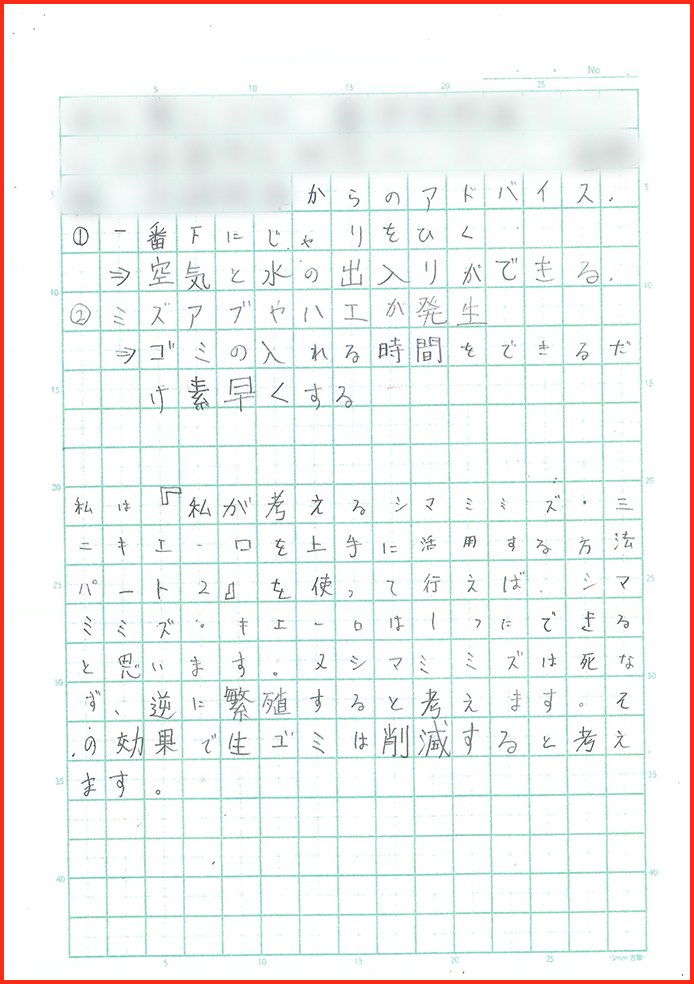 No.
5 10 15 20 25
からのアドバイス.
①一番下にじゃりをひく
⇒空気と水の出入りができる.
②ミズアブやハエが発生
⇒ゴミの入れる時間をできるだ
け素早くする
私は『私が考えるシマミミズ・ミ
ニキエーロを上手に活用する方法
パート2』を使って行えば、シマ
ミミズ・キエーロは1つにできる
と思います。又シマミミズは死な
ず、逆に繁殖すると考えます。そ
の効果で生ゴミは削減すると考え
ます。
5 10 15 20 25